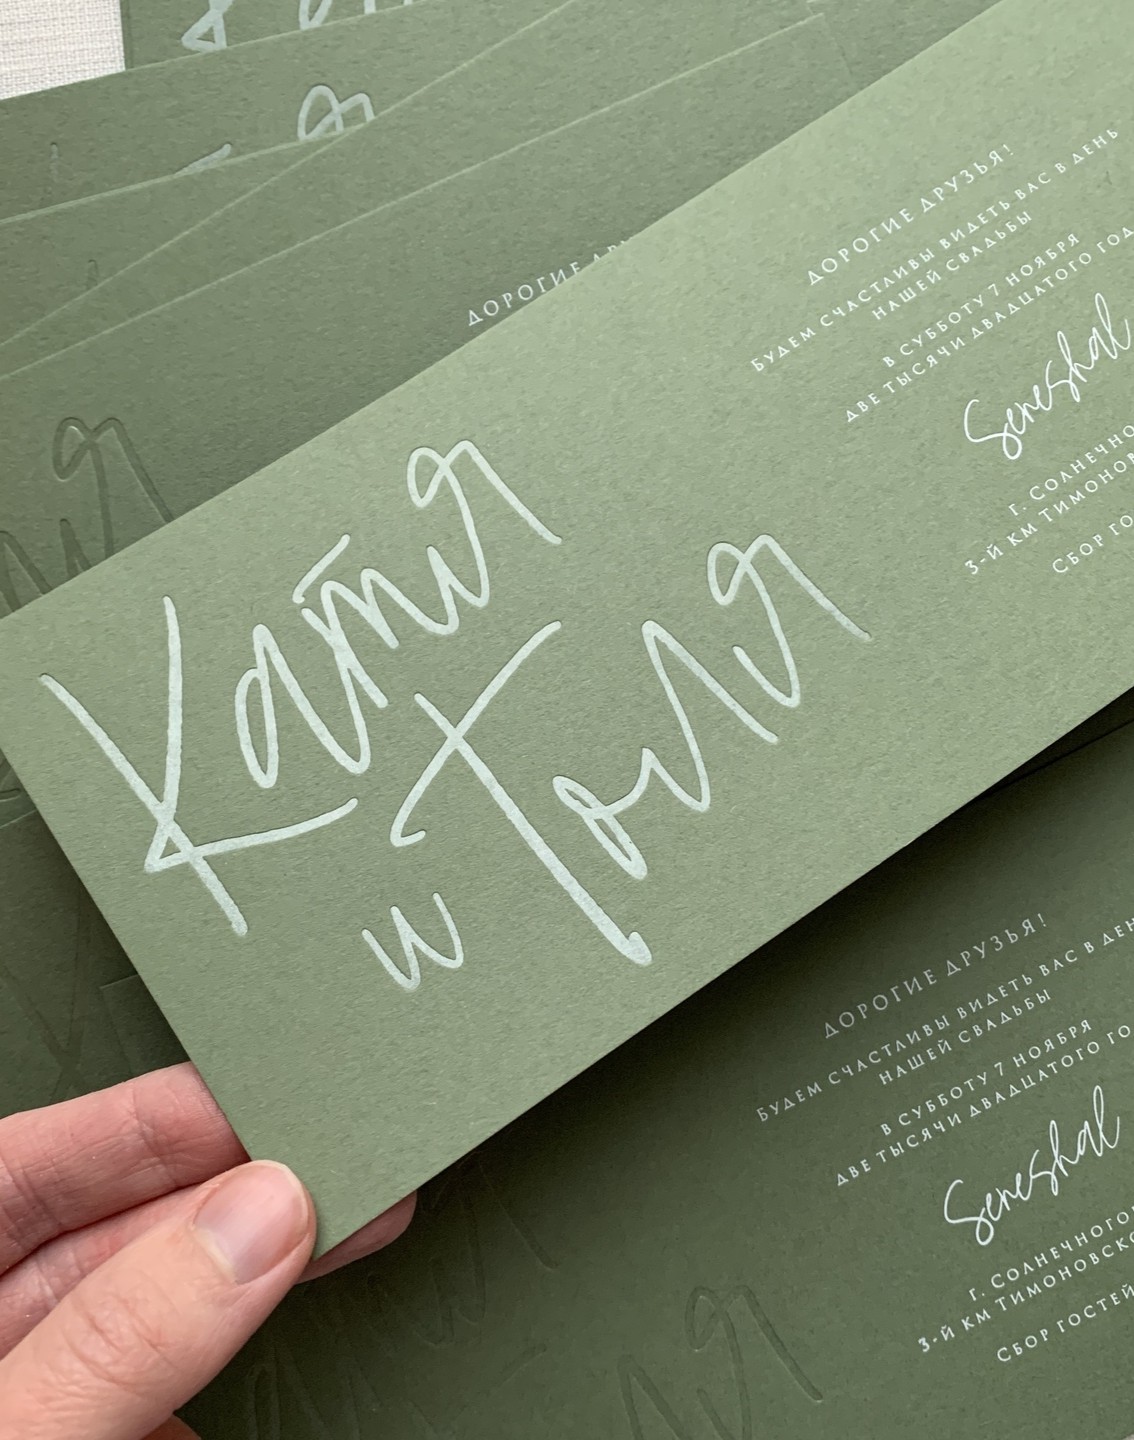 Катя
и Толя
ДОРОГИЕ ДРУЗЬЯ!
БУДЕМ СЧАСТЛИВЫ ВИДЕТЬ ВАС В ДЕНЬ
НАШЕЙ СВАДЬБЫ
В СУББОТУ 7 НОЯБРЯ
ДВЕ ТЫСЯЧИ ДВАДЦАТОГО ГОД
Seneshal
Г. СОЛНЕЧНО
3-Й КМ ТИМОНОВ
СБОР ГО
ДОРОГИЕ ДР
ДОРОГИЕ ДРУЗЬЯ!
БУДЕМ СЧАСТЛИВЫ ВИДЕТЬ ВАС В ДЕН
НАШЕЙ СВАДЬБЫ
В СУББОТУ 7 НОЯБРЯ
ДВЕ ТЫСЯЧИ ДВАДЦАТОГО ГО
Seneshal
Г. СОЛНЕЧНОГО
3-Й КМ ТИМОНОВСКО
СБОР ГОСТЕЙ